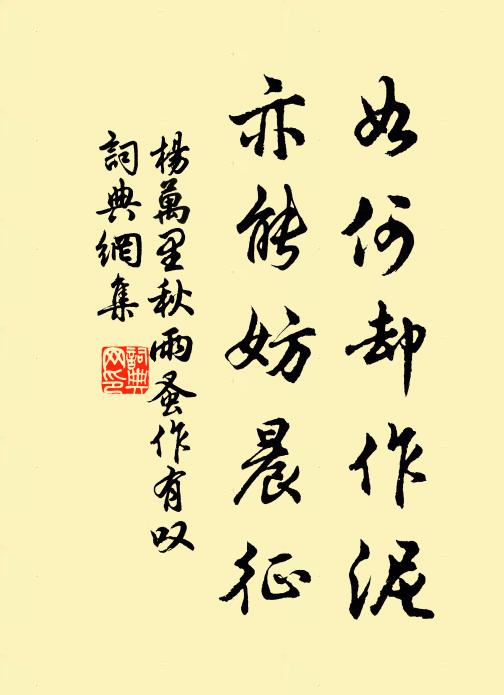 如何却作泥
亦能妨晨征
楊萬里秋雨蚤作有叹
詞典網集
詞典
网印